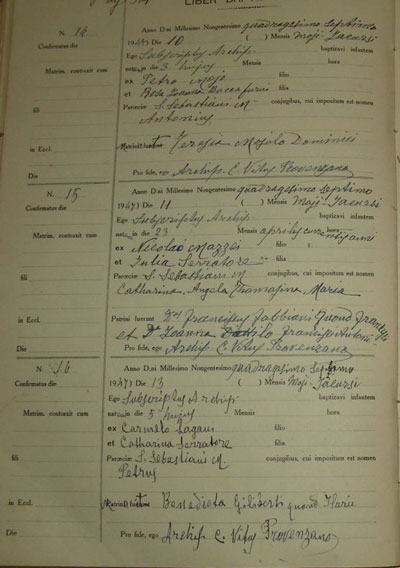 LIBER BA
N. 14
Confirmatus die
Matrim. contraxit cum
fili
in Eccl.
Die
Anno D.ni Millesimo Nongentesimo quadragesimo septimo
(1947) Die 10 ( ) Mensis Maji
Ego Subscriptus Archip. baptizavi infantem
natum die 3 hujus Mensis hora
ex Petro filio
et Rosa Joanna filia
Paroeciae S. Sebastiani M conjugibus, cui impositum est nomen
Antonius
Matrina fuit Dominici
Pro fide, ego Archip. C. Vitus Provenzano
N. 15
Confirmatus die
Matrim. contraxit cum
fili
in Eccl.
Die
Anno D.ni Millesimo Nongentesimo quadragesimo septimo
(1947) Die 11 ( ) Mensis Maji
Ego Subscriptus Archip. baptizavi infantem
natam die 23 Mensis aprilis hora
ex Nicolao Mazzei filio
et Julia Serratore filia
Paroeciae S. Sebastiani M conjugibus, cui impositum est nomen
Catharina, Angela Thomasina, Maria
Patrini fuerunt Franciscus Fabbiani quond
et Joanna
Pro fide, ego Archip. C. Vitus Provenzano
N. 16
Confirmatus die
Matrim. contraxit cum
fili
in Eccl.
Die
Anno D.ni Millesimo Nongentesimo quadragesimo septimo
(1947) Die 13 ( ) Mensis Maji
Ego Subscriptus Archip. baptizavi infantem
natum die 5 hujus Mensis hora
ex Carmelo Lagani filio
et Catharina Serratore filia
Paroeciae S. Sebastiani M conjugibus, cui impositum est nomen
Petrus
Matrina fuit Benedicta Giliberti quond Ilarii
Pro fide, ego Archip. C. Vitus Provenzano